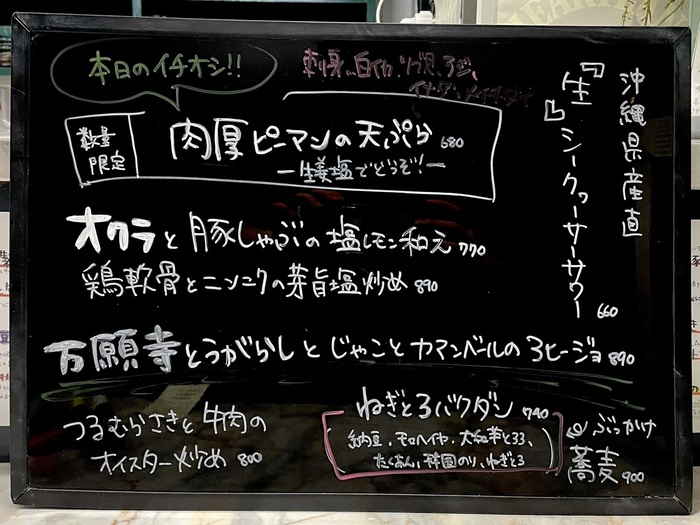 本日のイチオシ!!
刺身、白イカ、ツブ貝、アジ、
イナダ、
数量
限定
肉厚ピーマンの天ぷら 680
ー生姜塩でどうぞ!ー
沖縄県産直
『生』シークヮーサーサワー 660
オクラと豚しゃぶの塩レモン和え 770
鶏軟骨とニンニクの芽旨塩炒め 890
万願寺とうがらしとじゃことカマンベールのアヒージョ 890
つるむらさきと牛肉の
オイスター炒め 800
ねぎとろバクダン 790
納豆、モロヘイヤ、大和芋とろろ、
たくあん、韓国のり、ねぎとろ
ぶっかけ
蕎麦 900